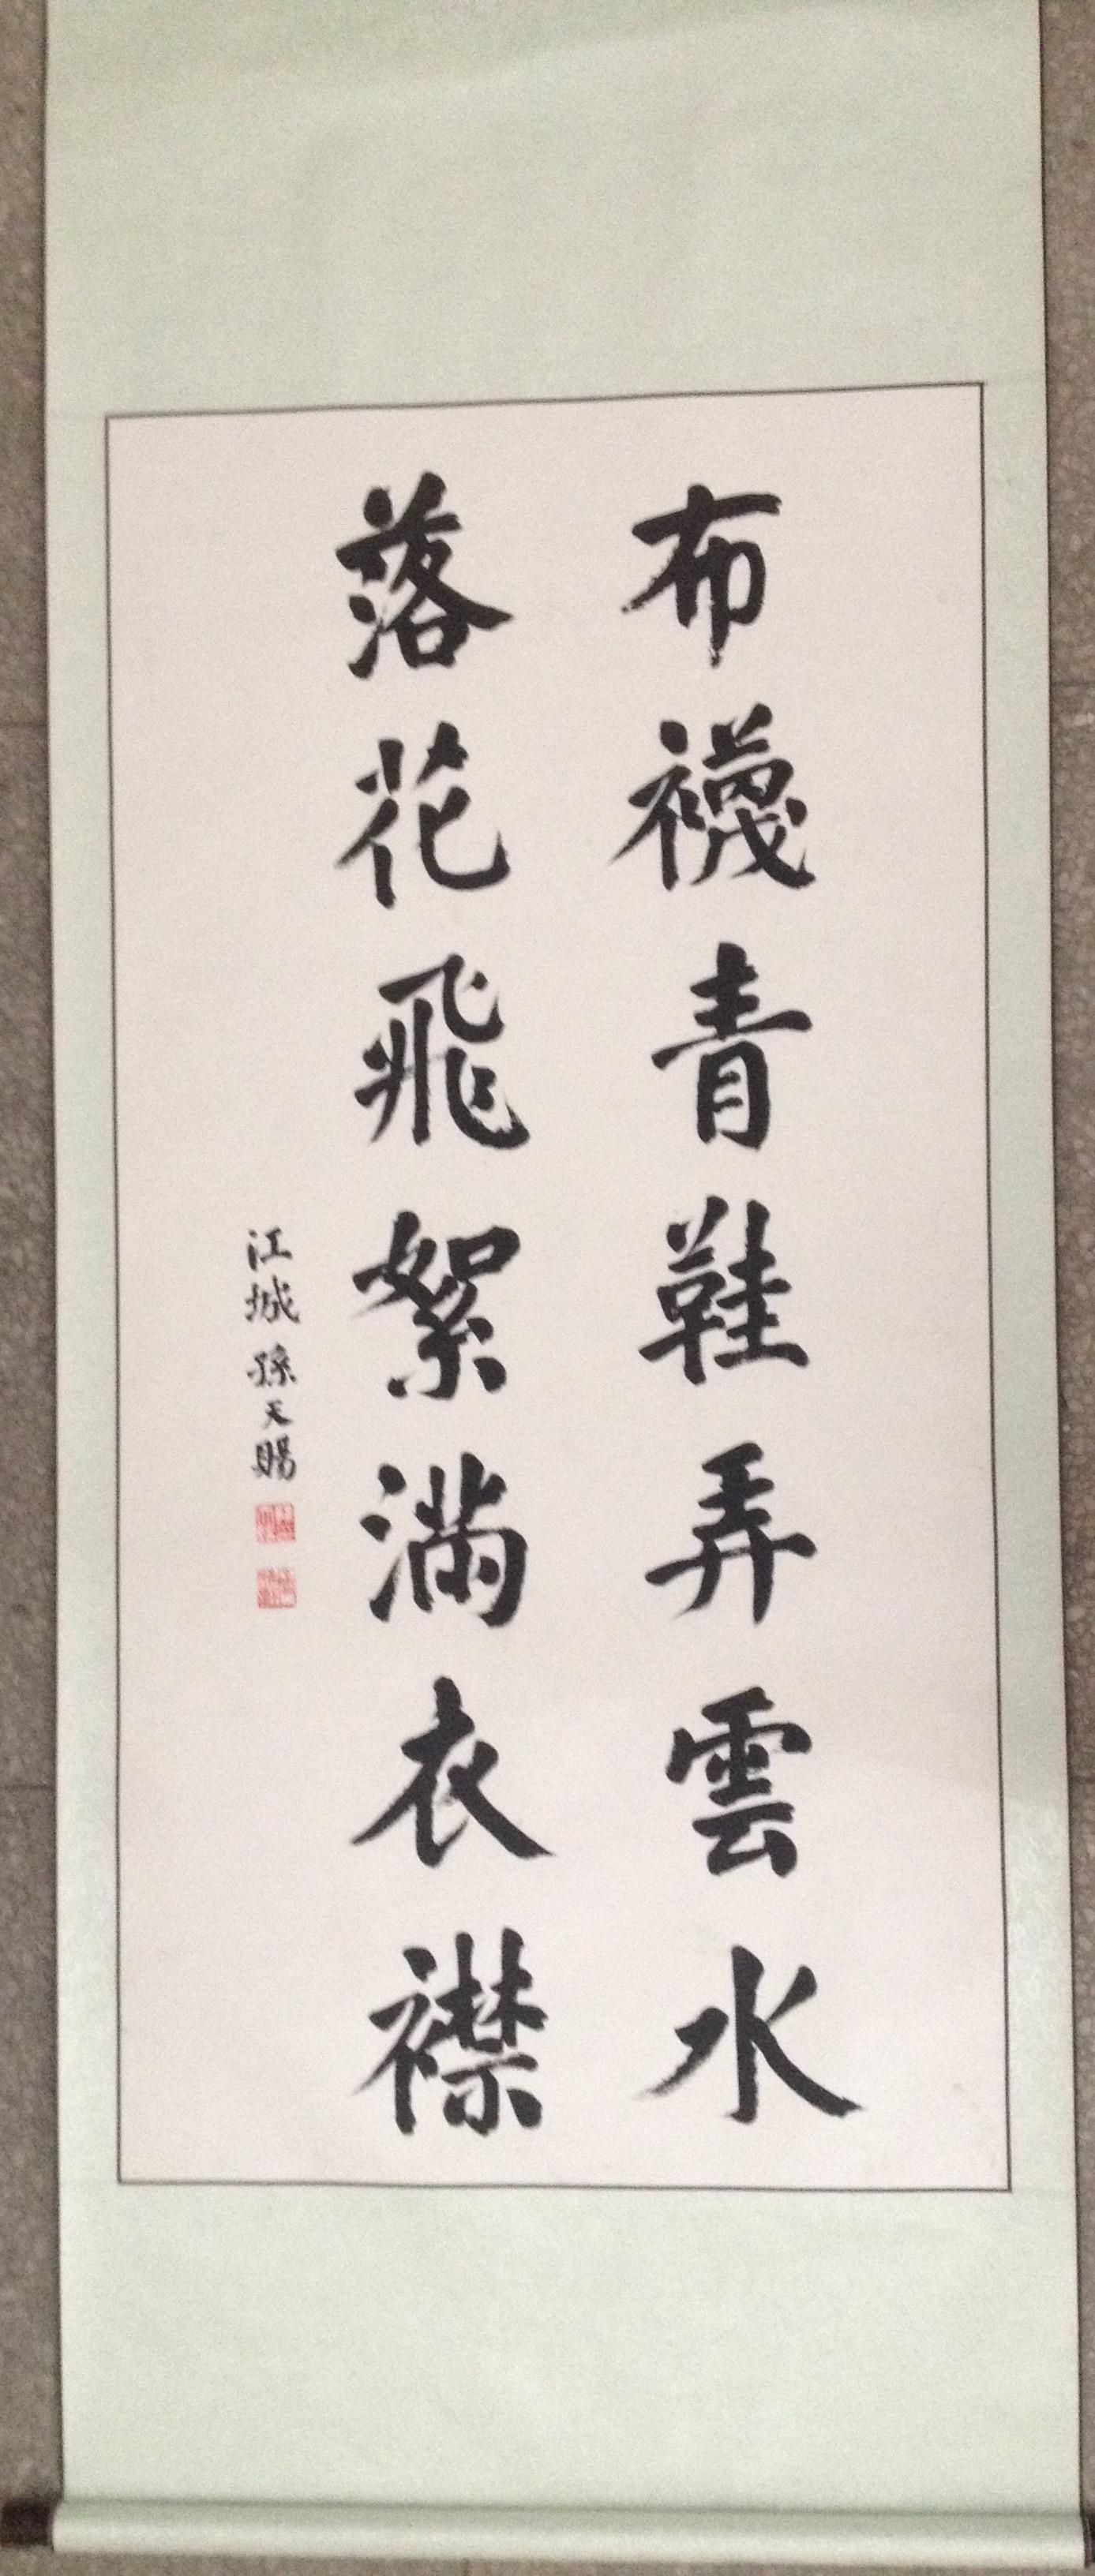 布襪青鞋弄雲水
落花飛絮滿衣襟
江城孫天賜